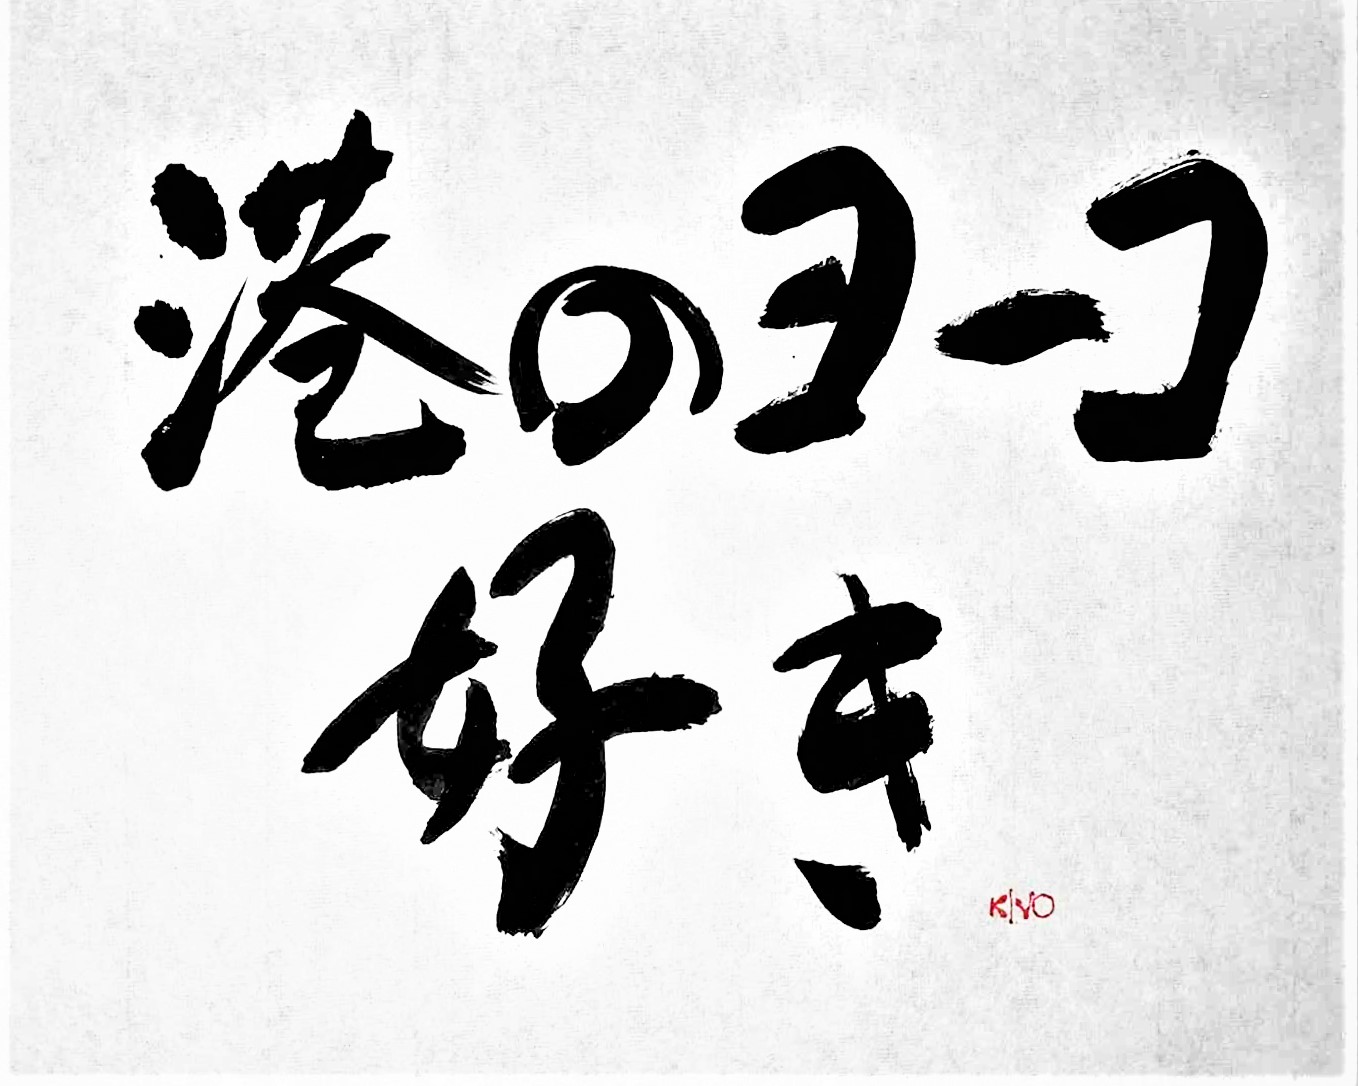 港のヨーコ
好き
KIYO